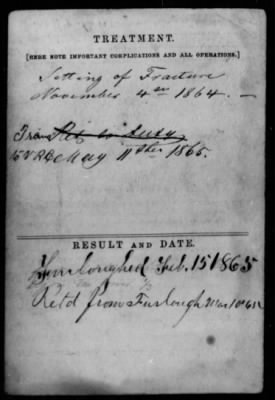 TREATMENT.
[HERE NOTE IMPORTANT COMPLICATIONS AND ALL OPERATIONS.]
Setting of Fracture
November 4th 1864.
Tra Ret to Duty
to VRC May 11th 1865.
RESULT AND DATE.
Furloughed Feb. 15 1865
Retd from Furlough Mar 10" 65